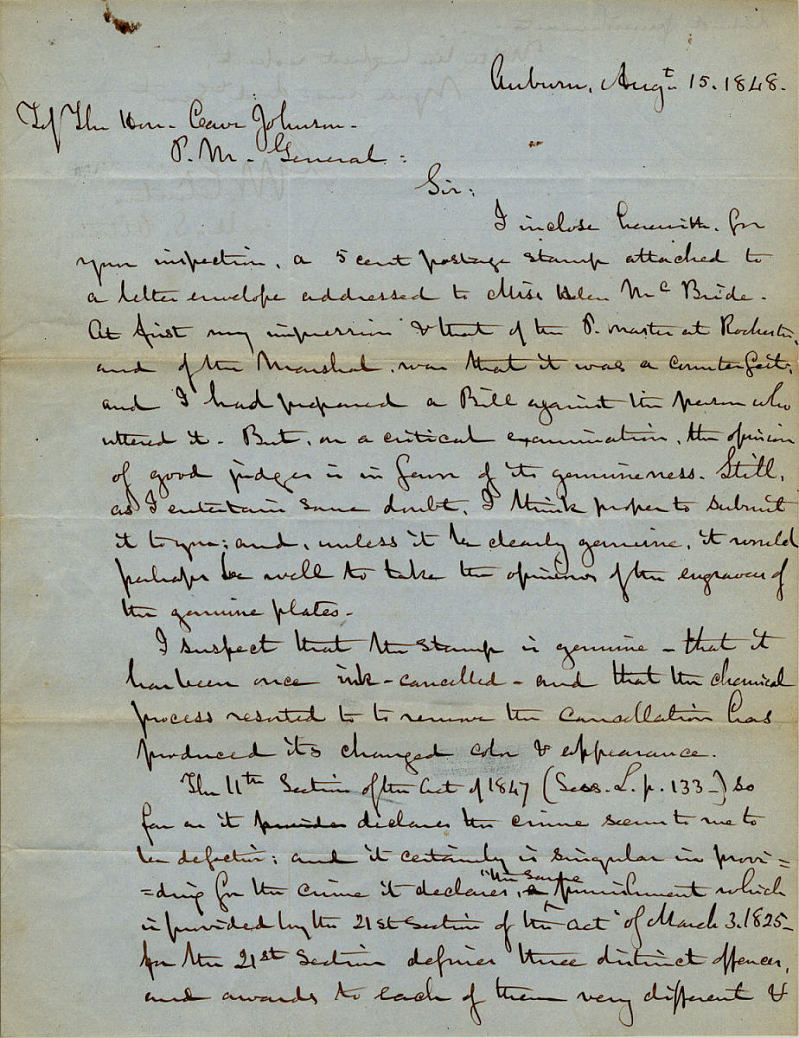 Auburn, Augt. 15. 1848.
To The Hon. Cave Johnson.
P. M. General:
Sir:
I inclose herewith, for
your inspection, a 5 cent postage stamp attached to
a letter envelope addressed to Miss Helen McBride.
At first my impression & that of the P. master at Rochester,
and of the Marshal, was that it was a counterfeit,
and I had prepared a Bill against the person who
uttered it. But, on a critical examination, the opinion
of good judges is in favor of its genuineness. Still,
as I entertain some doubt, I think proper to submit
it to you; and, unless it be clearly genuine, it would
perhaps be well to take the opinions of the engravers of
the genuine plates.
I suspect that the stamp is genuine - that it
has been once ink-cancelled - and that the chemical
process resorted to to remove the cancellation has
produced its changed color & appearance.
The 11th Section of the Act of 1847 (Sess. L. p. 133-) so
far as it provides declares the crime seems to me to
be defective; and it certainly is singular in provi=
=ding for the crime it declares, "the same punishment which
is provided by the 21st section of the act" of March 3. 1825-
for the 21st Section defines three distinct offences,
and awards to each of them very different &